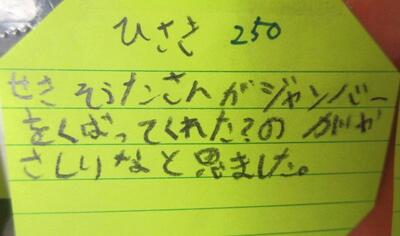 ひさき 250
せき そうたさん がジャンバー
をくばってくれた?の がや
さしいなと思ました。